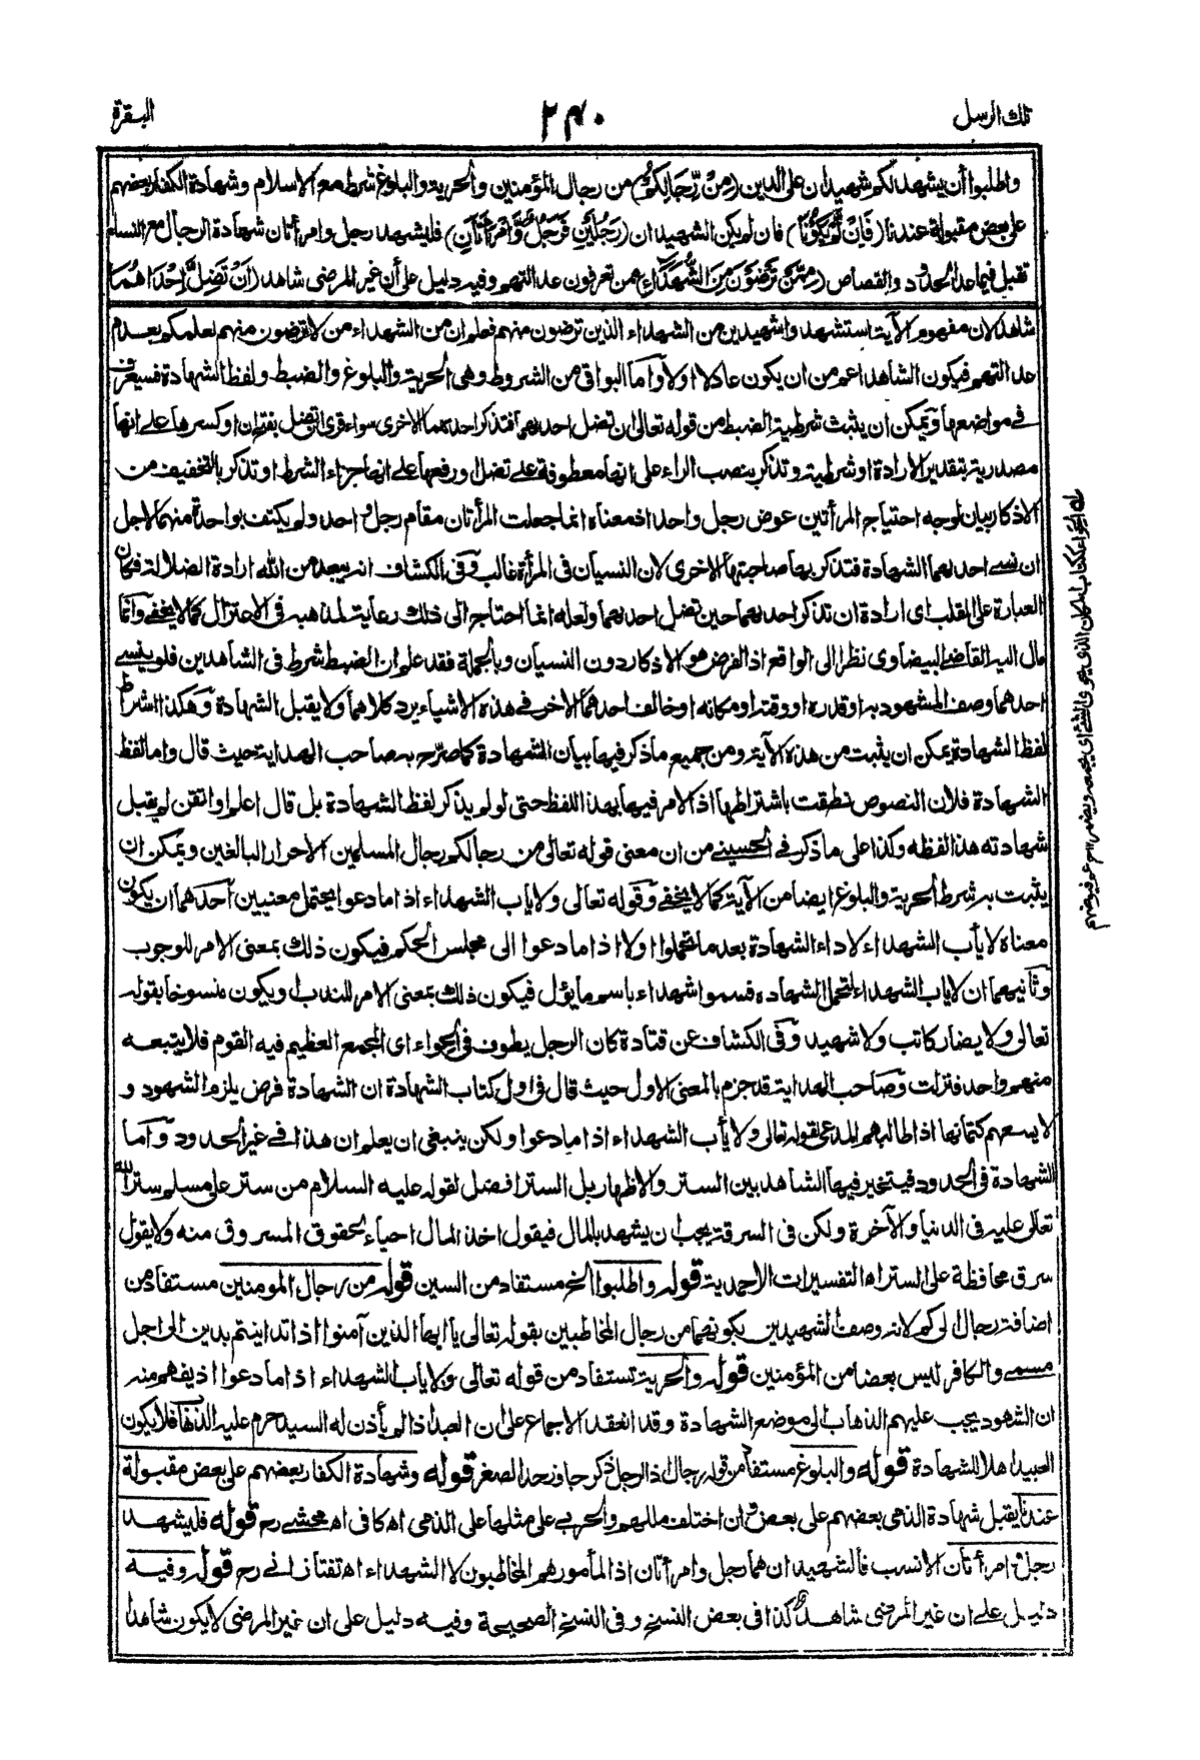 تلك الرسل
٢٤٠
البقرة
واطلبوا أن يشهد لكم شهيدان على الدين (مِنْ رِّجَالِكُمْ) من رجال المؤمنين والحرية والبلوغ شرط مع الاسلام وشهادة الكفار بعضهم
على بعض مقبولة عندنا (فَاِنْ لَّمْ يَكُوْنَا) فان لم يكن الشهيدان (رَجُلَيْنِ فَرَجُلٌ وَّامْرَاَتٰنِ) فليشهد رجل وامرأتان شهادة الرجال مع النساء
تقبل فيما عدا الحدود والقصاص (مِمَّنْ تَرْضَوْنَ مِنَ الشُّهَدَآءِ) ممن تعرفون عدالتهم وفيه دليل على أن غير المرضى شاهد (اَنْ تَضِلَّ اِحْدٰاهُمَا
شاهد لان مفهوم الآية استشهدوا شهيدين من الشهداء الذين ترضون منهم فعلم ان من الشهداء من لا ترضون منهم بعلمكم بعدم
عدالتهم فيكون الشاهد اعم من ان يكون عادلا اولا واما البواقى من الشروط وهى الحرية والبلوغ والضبط ولفظ الشهادة فسيعرف
فى مواضعها ويمكن ان يثبت شرطية الضبط من قوله تعالى ان تضل احدهما فتذكر احدهما الاخرى سواء قرئ تضل بفتح ان او كسرها على انها
مصدرية بتقدير الارادة او شرطية وتذكر بنصب الراء على انها معطوفة على تضل او رفعها على انها جزاء الشرط او تذكر بالتخفيف من
الاذكار بيان لوجه احتياج المرأتين عوض رجل واحد اذ معناه انما جعلت المرأتان مقام رجل واحد ولم يكتف بواحدة منهما لاجل
ان نسى احدهما الشهادة فتذكر بها صاحبتها الاخرى لان النسيان فى المرأة غالب وفى الكشاف انه يبعد من الله ارادة الضلالة فكان
العبارة على القلب اى ارادة ان تذكر احدهما حين تضل احدهما ولعله انما احتاج الى ذلك رعاية لمذهبه فى الاعتزال كما لا يخفى وانما
مال اليه القاضى البيضاوى نظرا الى الواقع اذ الغرض هو الاذكار دون النسيان وبالجملة فقد علم ان الضبط شرط فى الشاهدين فلو ينسى
احدهما وصف المشهود به او قدره او وقته او مكانه او خالف احدهما الآخر فى هذه الاشياء يرد كلاهما ولا يقبل الشهادة وهكذا اشتراط
لفظ الشهادة يمكن ان يثبت من هذه الآية ومن جميع ما ذكر فيها بيان الشهادة كما صرح به صاحب الهداية حيث قال واما لفظ
الشهادة فلان النصوص نطقت باشتراطها اذ الامر فيها بهذا اللفظ حتى لو لم يذكر لفظ الشهادة بل قال اعلم او اتقن لم يقبل
شهادته هذا لفظه وكذا على ما ذكر فى الحسينى من ان معنى قوله تعالى من رجالكم رجال المسلمين الاحرار البالغين ويمكن ان
يثبت به شرط الحرية والبلوغ ايضا من الآية كما لا يخفى وقوله تعالى ولا ياب الشهداء اذا ما دعوا يحتمل معنيين احدهما ان يكون
معناه لا يأب الشهداء لاداء الشهادة بعد ما تحملوا اولا اذا ما دعوا الى مجلس الحكم فيكون ذلك بمعنى الامر للوجوب
وثانيهما ان لا ياب الشهداء لتحمل الشهادة فسموا شهداء باسم ما يؤل فيكون ذلك بمعنى الامر للندب او يكون منسوخا بقوله
تعالى ولا يضار كاتب ولا شهيد وفى الكشاف عن قتادة كان الرجل يطوف فى الحواء اى المجمع العظيم فيه القوم فلا يتبعه
منهم واحد فنزلت وصاحب الهداية قد جزم بالمعنى الاول حيث قال فى اول كتاب الشهادة ان الشهادة فرض يلزم الشهود و
لا يسعهم كتمانها اذا طالبهم المدعى لقوله تعالى ولا يأب الشهداء اذا ما دعوا ولكن ينبغى ان يعلم ان هذا فى غير الحدود واما
الشهادة فى الحدود فيتخير فيها الشاهد بين الستر والاظهار بل الستر افضل لقوله عليه السلام من ستر على مسلم ستر الله
تعالى عليه فى الدنيا والآخرة ولكن فى السرقة يجب ان يشهد بالمال فيقول اخذ المال احياء لحقوق المسروق منه ولا يقول
سرق محافظة على الستر اه التفسيرات الاحمدية قوله واطلبوا الخ مستفاد من السين قوله من رجال المومنين مستفاد من
اضافة رجال الى كم لانه وصف الشهيدين بكونهما من رجال المخاطبين بقوله تعالى يا ايها الذين آمنوا اذا تداينتم بدين الى اجل
مسمى والكافر ليس بعضا من المؤمنين قوله والحرية تستفاد من قوله تعالى ولا ياب الشهداء اذا ما دعوا اذ يفهم منه
ان الشهود يجب عليهم الذهاب الى موضع الشهادة وقد انعقد الاجماع على ان العبد اذا لم يأذن له السيد حرم عليه الذهاب فلا يكون
العبيد اهلا للشهادة قوله والبلوغ مستفاد من قوله رجال اذ الرجل ذكر جاوز حد الصغر قوله وشهادة الكفار بعضهم على بعض مقبولة
عندنا يقبل شهادة الذمى بعضهم على بعض وان اختلف مللهم والحربى على مثلها على الذمى اه كافى اه محشى رح قوله فليشهد
رجل وامرأتان الانسب فالشهيدان هما رجل وامرأتان اذ المأمور هم المخاطبون لا الشهداء اه تفتازانى رح قوله وفيه
دليل على ان غير المرضى شاهد كذا فى بعض النسخ وفى النسخ الصحيحة وفيه دليل على ان غير المرضى لا يكون شاهدا